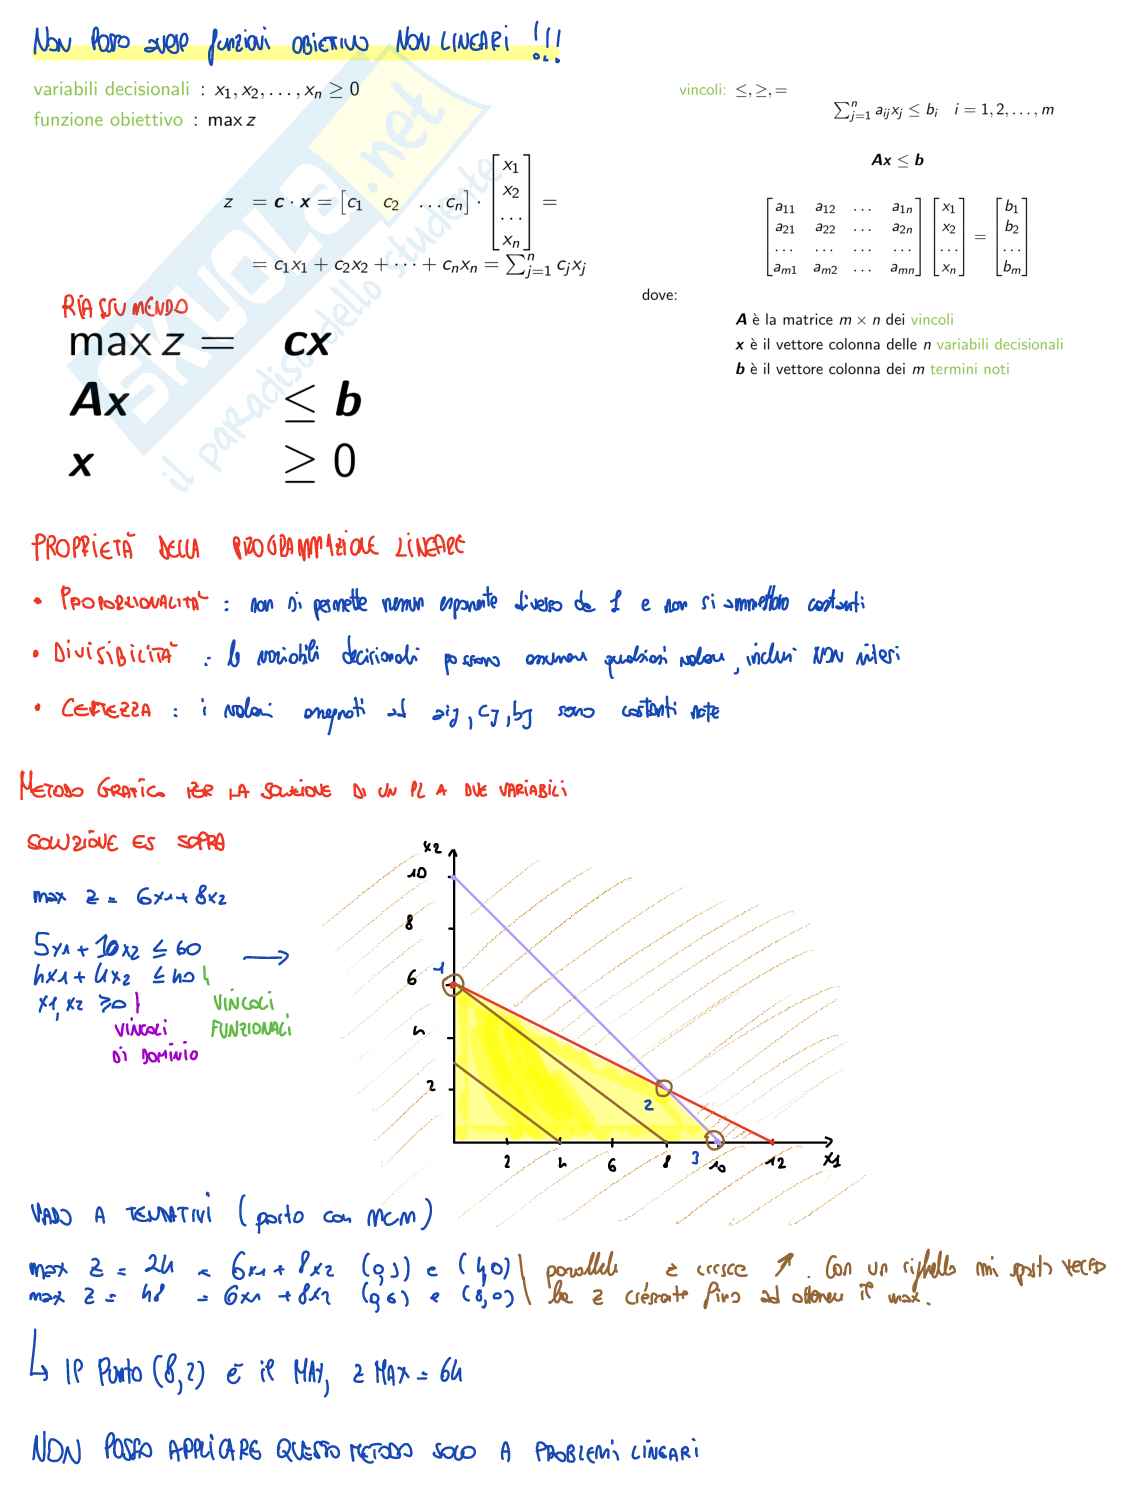 NON POSSO AVERE funzioni OBIETTIVO NON LINEARI !!!
variabili decisionali : x₁, x₂, . . . , xₙ ≥ 0
funzione obiettivo : max z
z = c · x = [c₁ c₂ . . . cₙ] · [x₁ x₂ . . . xₙ] =
= c₁x₁ + c₂x₂ + · · · + cₙxₙ = ∑ⁿⱼ₌₁ cⱼxⱼ
vincoli: ≤, ≥, =
∑ⁿⱼ₌₁ aᵢⱼxⱼ ≤ bᵢ i = 1, 2, . . . , m
Ax ≤ b
[a₁₁ a₁₂ . . . a₁ₙ] [x₁] [b₁]
[a₂₁ a₂₂ . . . a₂ₙ] [x₂] = [b₂]
[. . . . . . . . . . . .] [. . .] [. . .]
[aₘ₁ aₘ₂ . . . aₘₙ] [xₙ] [bₘ]
dove:
A è la matrice m × n dei vincoli
x è il vettore colonna delle n variabili decisionali
b è il vettore colonna dei m termini noti
RIASSUMENDO
max z = cx
Ax ≤ b
x ≥ 0
SKUOLA.net
il paradiso dello studente
PROPRIETÀ DELLA PROGRAMMAZIONE LINEARE
• PROPORZIONALITÀ : non si permette nessun esponente diverso da 1 e non si ammettono costanti
• DIVISIBILITÀ : le variabili decisionali possono assumere qualsiasi valore, inclusi NON interi
• CERTEZZA : i valori assegnati ad aij, cj, bj sono costanti note
METODO GRAFICO PER LA SOLUZIONE DI UN PL A DUE VARIABILI
SOLUZIONE ES SOPRA
max z = 6x1 + 8x2
5x1 + 10x2 ≤ 60
4x1 + 4x2 ≤ 40
x1, x2 ≥ 0
VINCOLI FUNZIONALI
VINCOLI DI DOMINIO
x2
10
8
1
6
4
2
2
2 4 6 8 3 10 12 x1
VADO A TENTATIVI (parto con mcm)
max z = 24 = 6x1 + 8x2 (0,3) e (4,0) parallele z cresce ↗. Con un righello mi sposto verso
max z = 48 = 6x1 + 8x2 (0,6) e (8,0) la z crescente fino ad ottenere il max.
↳ Il Punto (8,2) è il MAX, z MAX = 64
NON POSSO APPLICARE QUESTO METODO SOLO A PROBLEMI LINEARI